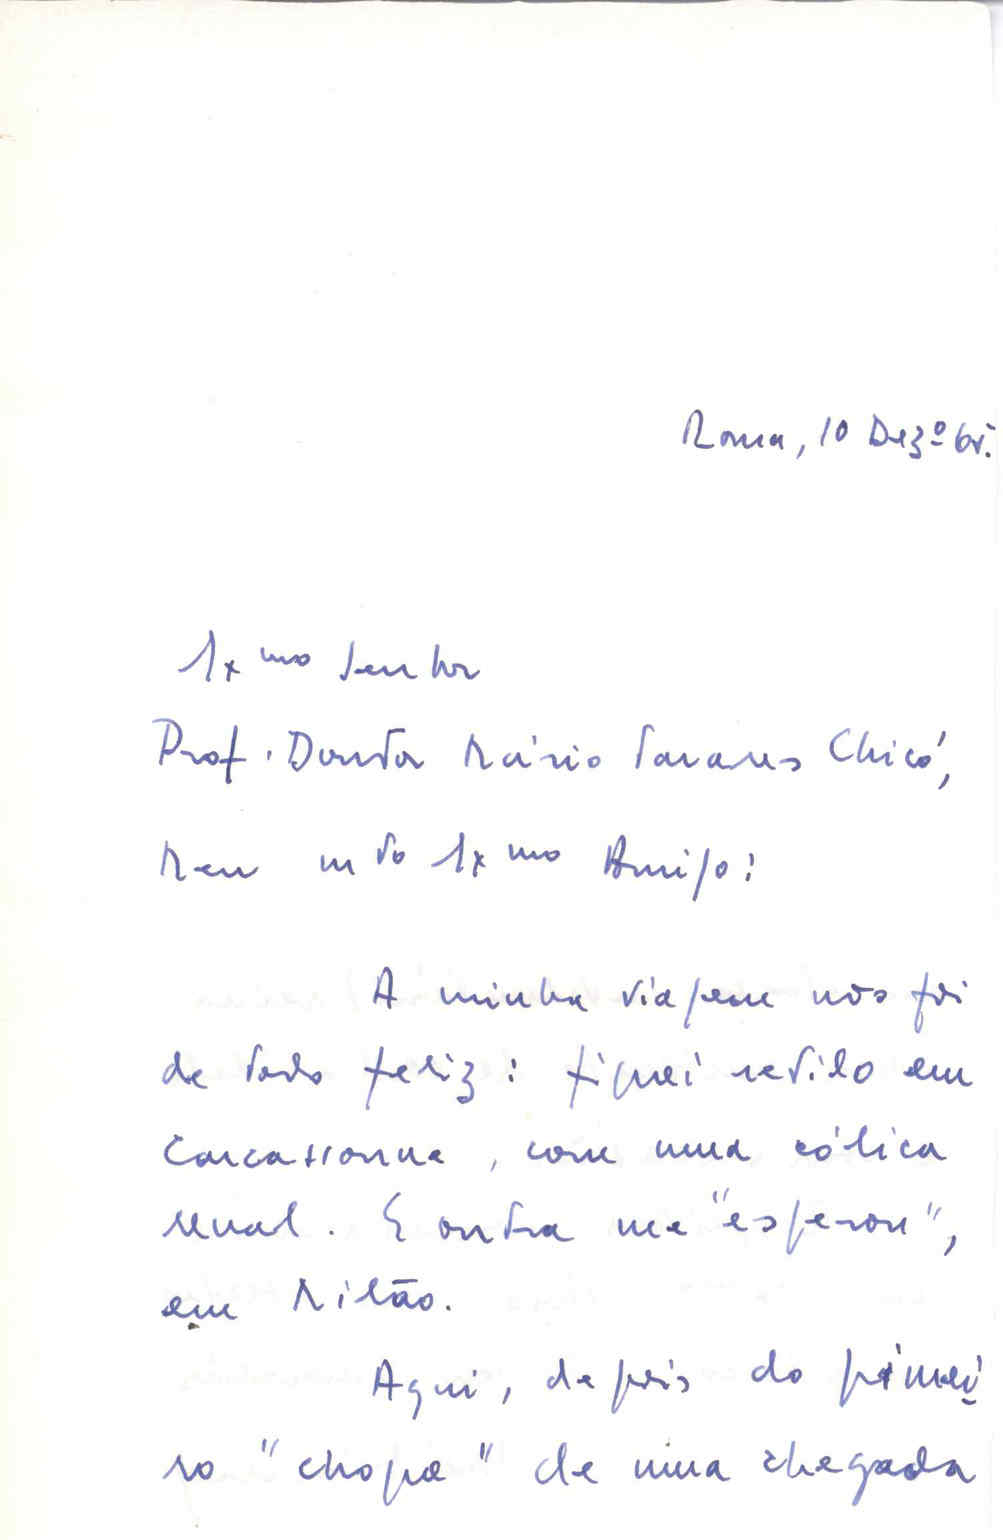 Roma, 10 Dezº 65.
Ex mo Senhor
Prof. Doutor Mário Tavares Chicó,
Meu m to Ex mo Amigo:
A minha viagem não foi
de todo feliz: fiquei retido em
Carcassonne, com uma cólica
renal. E outra me "esperou",
em Milão.
Aqui, depois do primei
ro "choque" de uma chegada